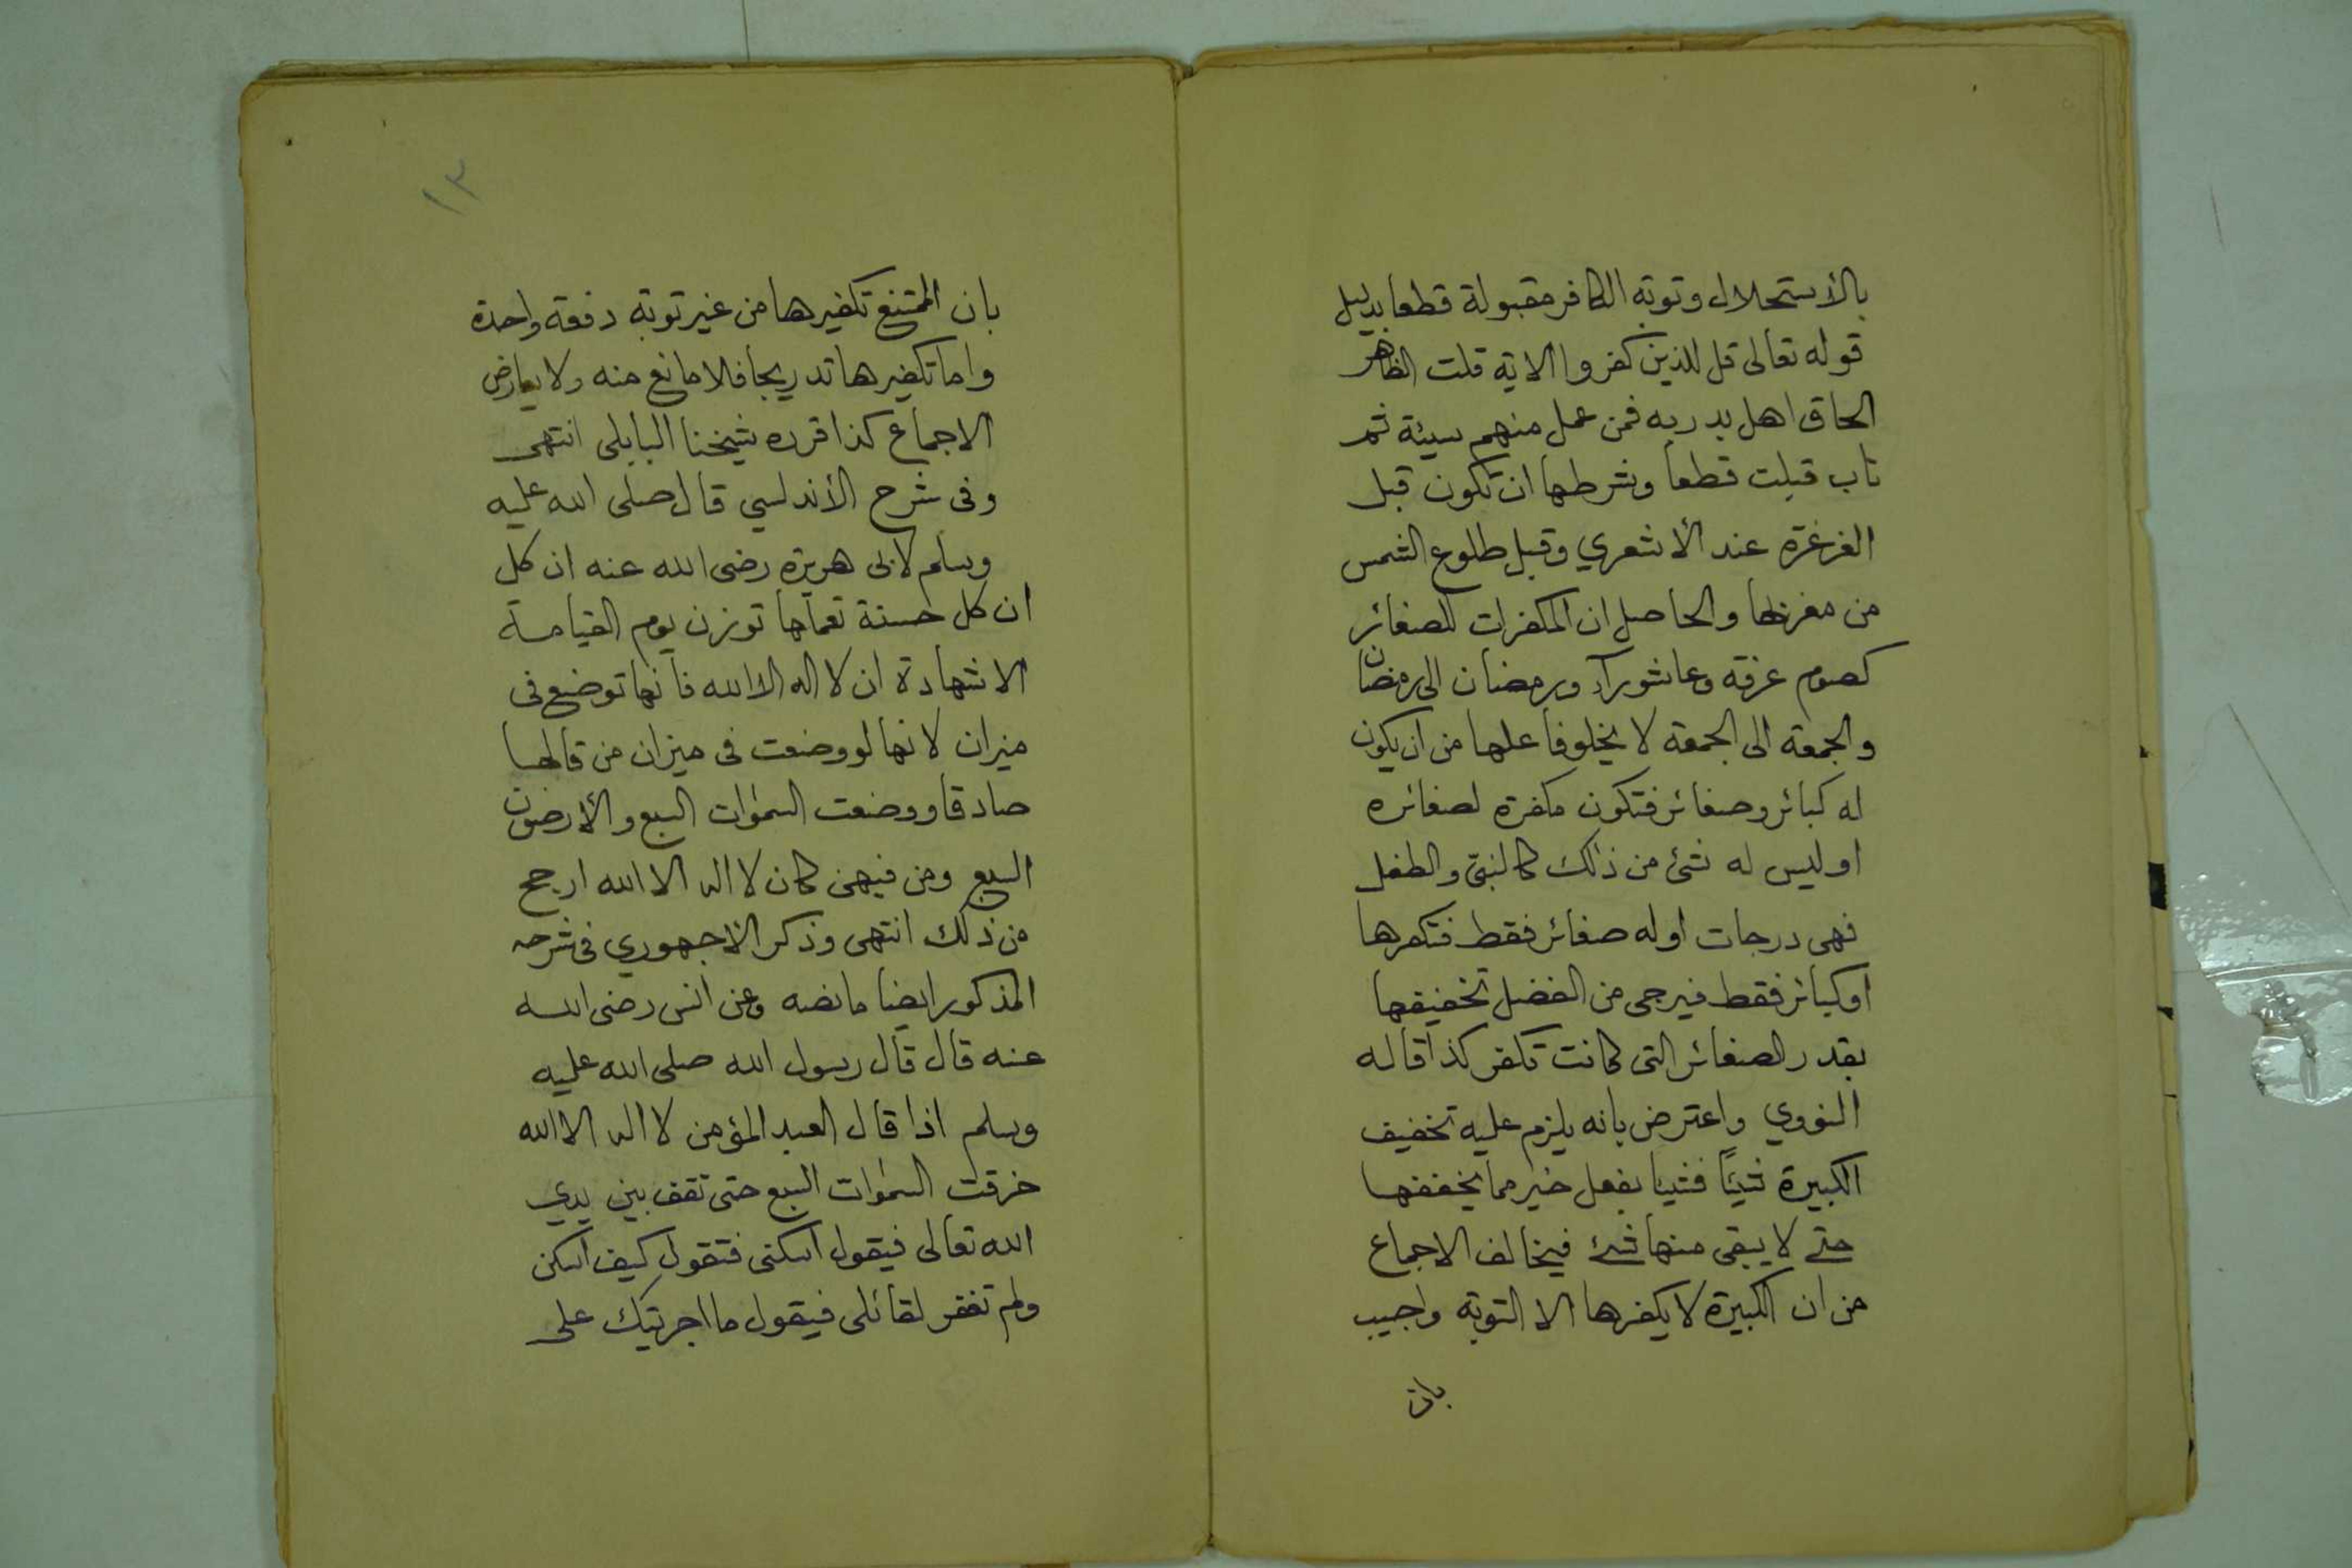 بالأستحلال وتوبة الكافر مقبولة قطعا بدليل
قوله تعالى قل للذين كفروا الاية قلت الظاهر
الحاق اهل بدر به فمن عمل منهم سيئة ثم
تاب قبلت قطعا وشرطها ان تكون قبل
الغرغرة عند الأشعري وقبل طلوع الشمس
من مغربها والحاصل ان المكفرات للصغائر
كصوم عرفة وعاشورآء ورمضان الى رمضان
والجمعة الى الجمعة لا يخلو فاعلها من ان يكون
له كبائر وصغائر فتكون مكفرة لصغائره
او ليس له شئ من ذلك كالنبىّ والطفل
فهى درجات او له صغائر فقط فتكفرها
او كبائر فقط فيرجى من الفضل تخفيفها
بقدر الصغائر التى كانت تكفر كذا قاله
النووي واعترض بانه يلزم عليه تخفيف
الكبيرة شيئًا فشيئا بفعل خير مما يخففها
حتى لا يبقى منها شئ فيخالف الاجماع
من ان الكبيرة لا يكفرها الا التوبة واجيب
بان
١٣
بان الممتنع تكفيرها من غير توبة دفعة واحدة
واما تكفيرها تدريجا فلا مانع منه ولا يعارض
الاجماع كذا قرره شيخنا البابلى انتهى
وفى شرح الأندلسي قال صلى الله عليه
وسلم لابى هريرة رضى الله عنه ان كل
ان كل حسنة تعملها توزن يوم القيامة
الا شهادة ان لا اله الا الله فانها توضع فى
ميزان لانها لو وضعت فى ميزان من قالها
صادقا ووضعت السموات السبع والأرضون
السبع ومن فيهن كان لا اله الا الله ارجح
من ذلك انتهى وذكر الاجهوري فى شرحه
المذكور ايضا ما نصه وعن انس رضى الله
عنه قال قال رسول الله صلى الله عليه
وسلم اذا قال العبد المؤمن لا اله الا الله
خرقت السموات السبع حتى تقف بين يدي
الله تعالى فيقول اسكنى فتقول كيف اسكن
ولم تغفر لقائلى فيقول ما اجريتك على